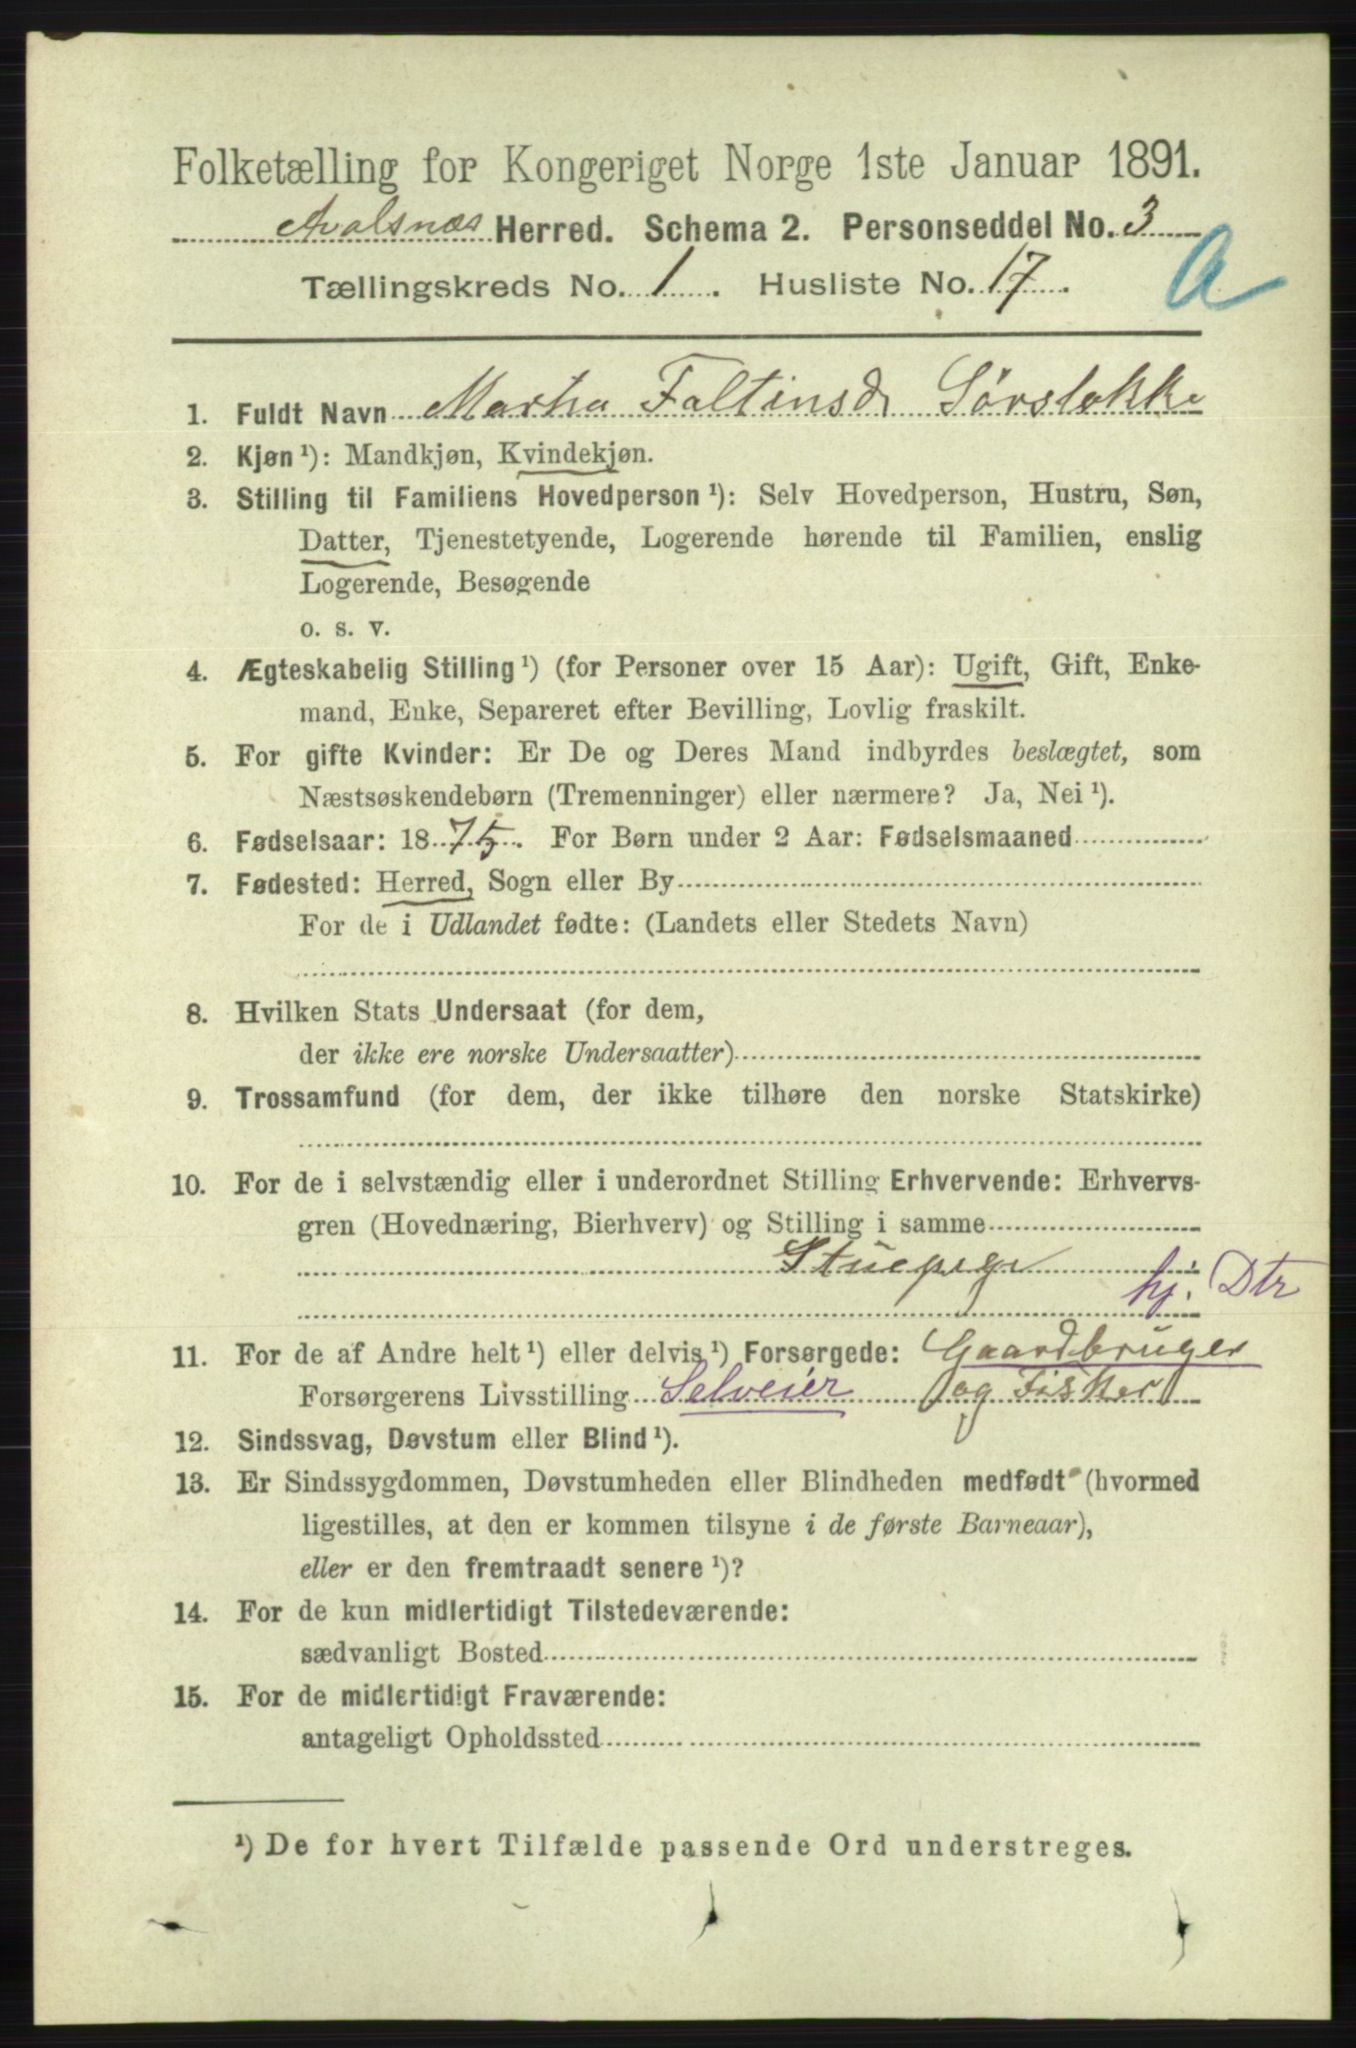 Folketælling for Kongeriget Norge 1ste Januar 1891.
Avalsnæs Herred. Schema 2. Personseddel No. 3
Tællingskreds No. 1. Husliste No. 17.
A
1. Fuldt Navn Martha Faltinsd Sørstokke
2. Kjøn ¹): Mandkjøn, Kvindekjøn.
3. Stilling til Familiens Hovedperson ¹): Selv Hovedperson, Hustru, Søn,
Datter, Tjenestetyende, Logerende hørende til Familien, enslig
Logerende, Besøgende
o. s. v.
4. Ægteskabelig Stilling ¹) (for Personer over 15 Aar): Ugift, Gift, Enke-
mand, Enke, Separeret efter Bevilling, Lovlig fraskilt.
5. For gifte Kvinder: Er De og Deres Mand indbyrdes beslægtet, som
Næstsøskendebørn (Tremenninger) eller nærmere? Ja, Nei ¹).
6. Fødselsaar: 1875. For Børn under 2 Aar: Fødselsmaaned
7. Fødested: Herred, Sogn eller By
For de i Udlandet fødte: (Landets eller Stedets Navn)
8. Hvilken Stats Undersaat (for dem,
der ikke ere norske Undersaatter)
9. Trossamfund (for dem, der ikke tilhøre den norske Statskirke)
10. For de i selvstændig eller i underordnet Stilling Erhvervende: Erhvervs-
gren (Hovednæring, Bierhverv) og Stilling i samme
Stuepige
hj. Dtr
11. For de af Andre helt ¹) eller delvis ¹) Forsørgede: Gaardbruger
Forsørgerens Livsstilling Selveier og Fisker
12. Sindssvag, Døvstum eller Blind ¹).
13. Er Sindssygdommen, Døvstumheden eller Blindheden medfødt (hvormed
ligestilles, at den er kommen tilsyne i de første Barneaar),
eller er den fremtraadt senere ¹)?
14. For de kun midlertidigt Tilstedeværende:
sædvanligt Bosted
15. For de midlertidigt Fraværende:
antageligt Opholdssted
¹) De for hvert Tilfælde passende Ord understreges.